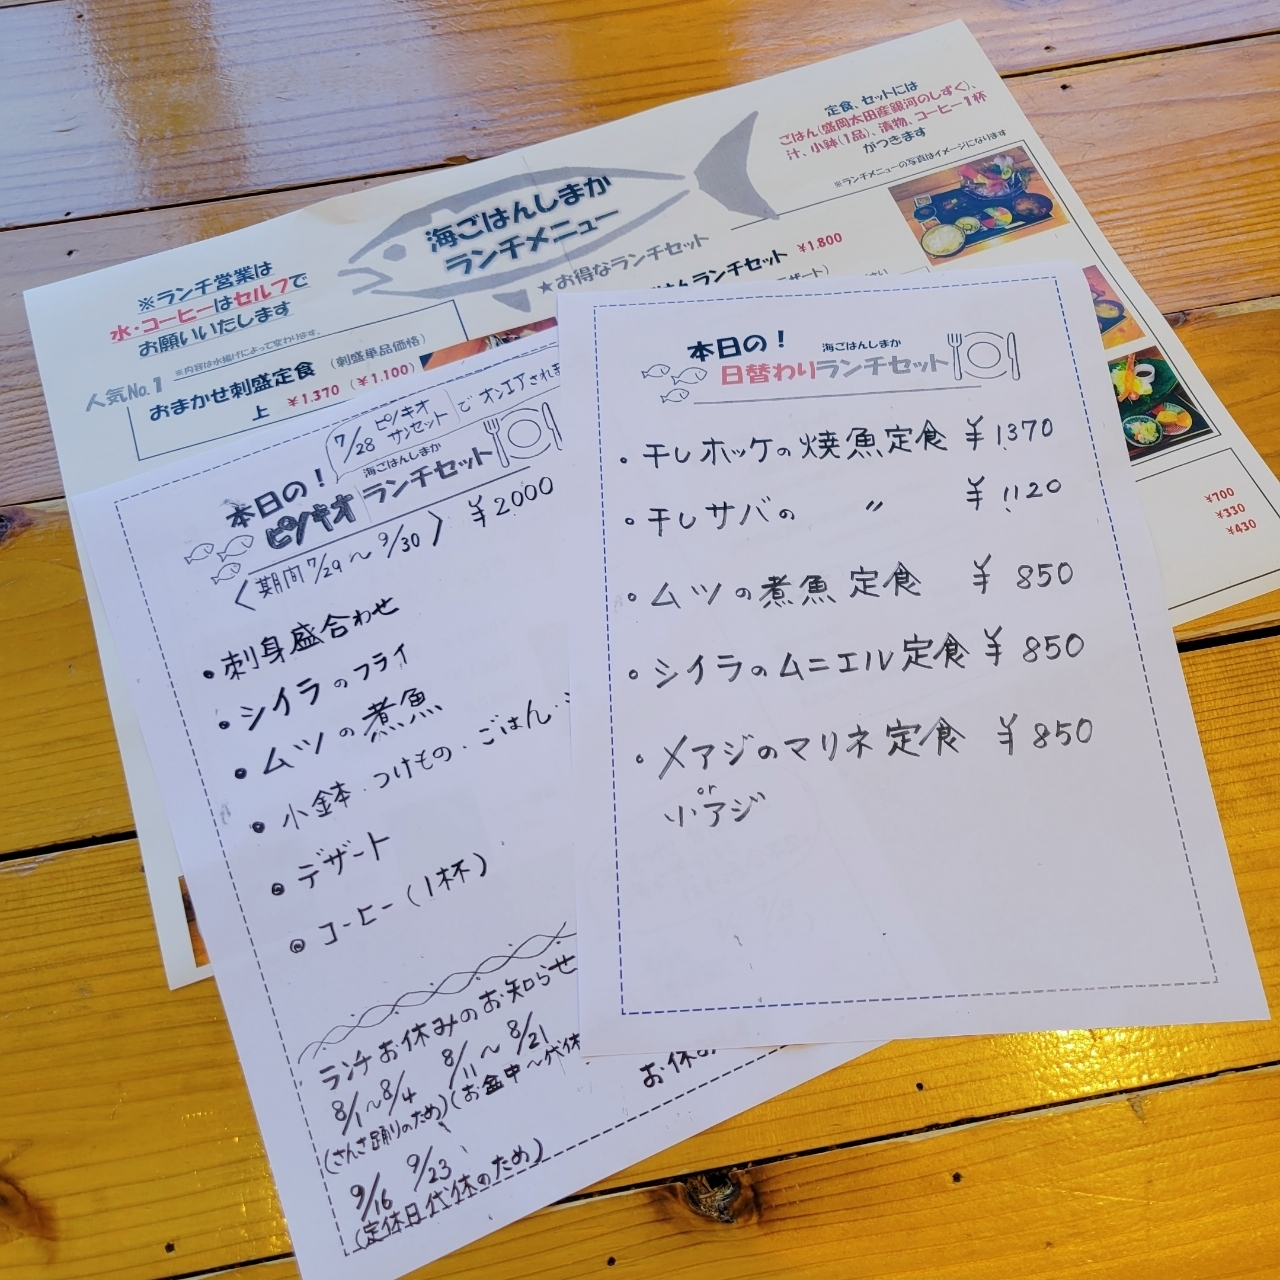 定食、セットには
ごはん(盛岡太田産銀河のしずく)、
汁、小鉢(1品)、漬物、コーヒー1杯
がつきます
※ランチメニューの写真はイメージになります
海ごはんしまか
ランチメニュー
★お得なランチセット
ランチセット ¥1.800
※ランチ営業は
水・コーヒーはセルフで
お願いいたします
※内容は水揚げによって変わります。
人気No.1
おまかせ刺盛定食 (刺盛単品価格)
上 ¥1.370 (¥1.100)
¥700
¥330
¥430
7/28 ピンキオサンセット でオンエアされま
本日の!
海ごはんしまか
ピンキオ ランチセット
〈期間 7/29 〜 9/30〉 ¥2000
・刺身盛合わせ
・シイラのフライ
・ムツの煮魚
・小鉢・つけもの・ごはん・
・デザート
・コーヒー(1杯)
ランチお休みのお知らせ
8/1〜8/4 8/11 〜 8/21
(さんさ踊りのため)(お盆中〜代休
9/16 9/23
(定休日代休のため)
本日の!
海ごはんしまか
日替わりランチセット
・干しホッケの焼魚定食 ¥1370
・干しサバの 〃 ¥1120
・ムツの煮魚定食 ¥850
・シイラのムニエル定食 ¥850
・メアジのマリネ定食 ¥850
or
小アジ